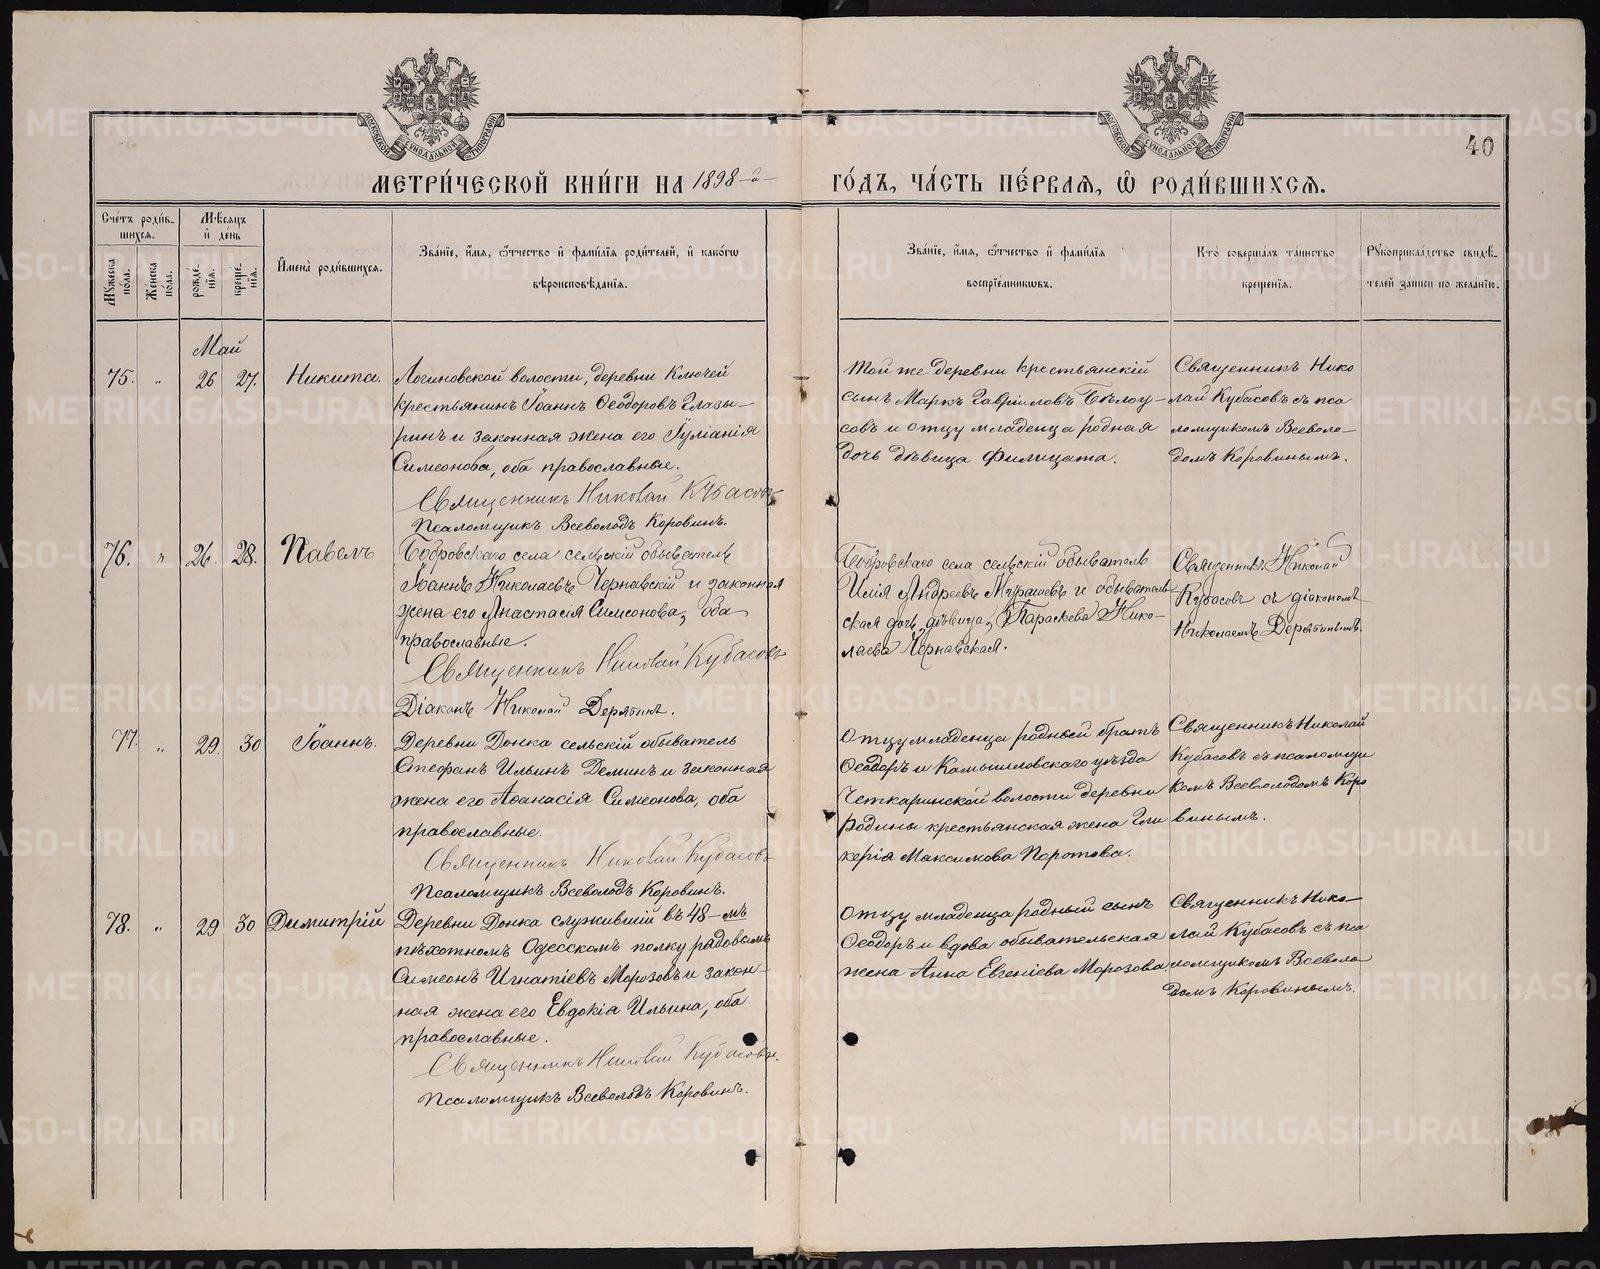 40
МЕТРИ́ЧЕСКОЙ КНИ́ГИ НА 1898-й
ГО́ДЪ, ЧА́СТЬ ПЕ́РВАЯ, Ѽ РОДИ́ВШИХСЯ.
Сче́тъ роди́вшихся.
Му́жеска по́ла.
Же́нска по́ла.
Мѣ́сяцъ и҆ де́нь
рожде́нїя.
креще́нїя.
И҆мена̀ роди́вшихся.
Зва́нїе, и҆́мя, ѻ҆́тчество и҆ фами́лїя роди́телей, и҆ како́гѡ
вѣроисповѣ́данїя.
Зва́нїе, и҆́мя, ѻ҆́тчество и҆ фами́лїя
воспрїе́мниковъ.
Кто̀ соверша́лъ та́инство
креще́нїя.
Рꙋкоприкла́дство свидѣ́-
телей за́писи по жела́нїю.
Май
75. „ 26 27. Никита.
Логиновской волости, деревни Ключей
крестьянинъ Іоаннъ Ѳеодоровъ Глазы-
ринъ и законная жена его Іуліанія
Симеонова, оба православные.
Священникъ Николай Кубасовъ
Псаломщикъ Всеволодъ Коровинъ.
Той же деревни крестьянскій
сынъ Маркъ Гавріиловъ Бѣлоу-
совъ и отцу младенца родная
дочь дѣвица Филицата.
Священникъ Нико
лай Кубасовъ съ пса
ломщикомъ Всеволо-
домъ Коровинымъ.
76. „ 26. 28. Павелъ
Бобровскаго села сельскій обыватель
Іоаннъ Николаевъ Чернавскій и законная
жена его Анастасія Симеонова, оба
православные.
Священникъ Николай Кубасовъ
Діаконъ Николай Дерябинъ.
Бобровскаго села сельскій обыватель
Илія Андреевъ Мурашевъ и обыватель-
ская дочь, дѣвица, Параскева Нико-
лаева Чернавская.
Священникъ Николай
Кубасовъ съ діакономъ
Николаемъ Дерябинымъ.
77. „ 29. 30 Іоаннъ.
Деревни Донка сельскій обыватель
Стефанъ Ильинъ Деминъ и законная
жена его Аѳанасія Симеонова, оба
православные.
Священникъ Николай Кубасовъ
Псаломщикъ Всеволодъ Коровинъ.
Отцу младенца родной братъ
Ѳеодоръ и Камышловскаго уѣзда
Четкаринской волости деревни
Родины крестьянская жена Гли
керія Максимова Поротова.
Священникъ Николай
Кубасовъ съ псаломщи
комъ Всеволодомъ Коро
винымъ.
78. „ 29 30 Димитрій
Деревни Донка служившій въ 48-мъ
пѣхотномъ Одесскомъ полку рядовымъ
Симеонъ Игнатіевъ Морозовъ и закон-
ная жена его Евдокія Ильина, оба
православные.
Священникъ Николай Кубасовъ.
Псаломщикъ Всеволодъ Коровинъ.
Отцу младенца родный сынъ
Ѳеодоръ и вдова обывательская
жена Анна Евгеніева Морозова
Священникъ Нико-
лай Кубасовъ съ пса
ломщикомъ Всеволо
домъ Коровинымъ.
METRIKI.GASO-URAL.RU